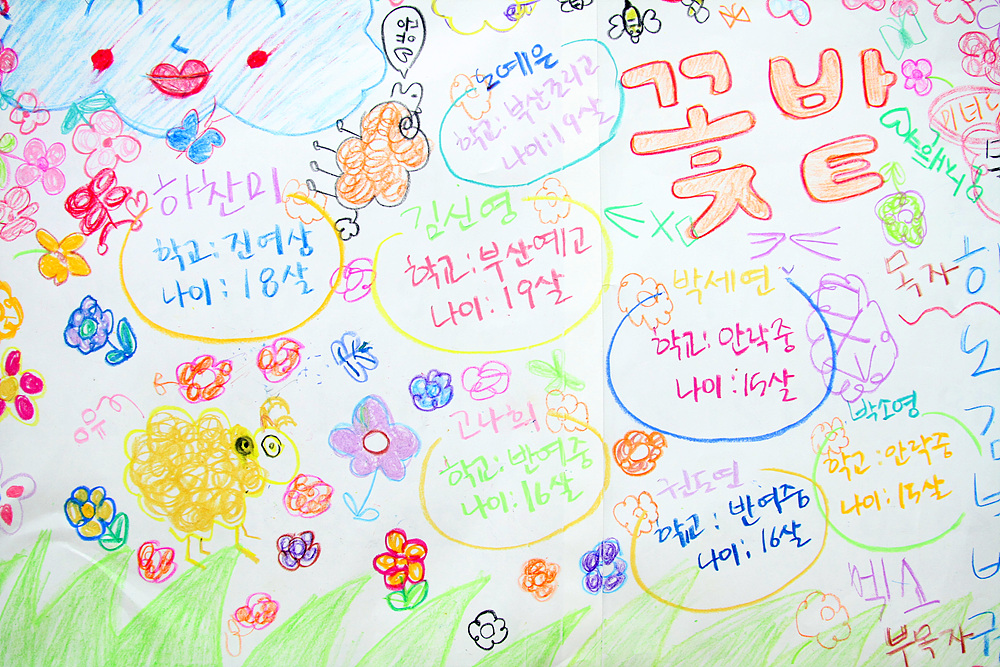 꽃밭
노예은
학교: 부산조리고
나이: 19살
하찬미
학교: 진여상
나이: 18살
김신영
학교: 부산예고
나이: 19살
박세연
학교: 안락중
나이: 15살
고나희
학교: 반여중
나이: 16살
권도연
학교: 반여중
나이: 16살
박소영
학교: 안락중
나이: 15살
목자
부목자